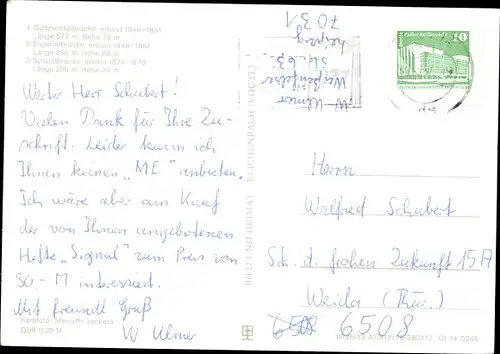 1 Göltzschtalbrücke, erbaut 1846-1851
Länge 577 m, Höhe 78 m
2 Elstertalbrücke, erbaut 1846-1851
Länge 280 m, Höhe 68 m
3 Syratalbrücke, erbaut
Länge 206 m, Höhe 20 m
Werter Herr Schubert!
Vielen Dank für Ihre Zu-
schrift. Leider kann ich
Ihnen keinen „ME" anbieten.
Ich wäre aber am Kauf
der von Ihnen angebotenen
Hefte „Signal" zum Preis von
30,- M interessiert.
Mit freundl. Gruß
W Ulmer
DDR 0,20 M
BILD UND HEIMAT REICHENBACH (VOGTL)
W. Ulmer
Weißenfelser
Str. 63
Leipzig
7031
10
Herrn
Walfred Schubert
Str. d. frohen Zukunft 15A
Weida (Thür.)
6508 6508
01 14 0245